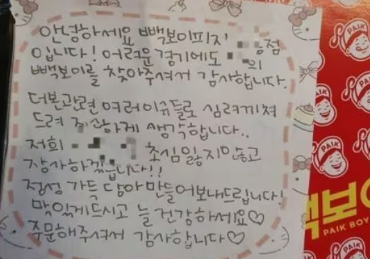 안녕하세요 빽보이피자
입니다! 어려운 경기에도 점의
빽보이를 찾아주셔서 감사합니다.
더본관련 여러이슈들로 심려끼쳐
드려 하게 생각합니다..
저희 초심 잃지않고
장사하겠습니다!!
정성 가득 담아 만들어보내드립니다!
맛있게드시고 늘 건강하세요♡
주문해주셔서 감사합니다♡
PAIK
PAIK
빽보이
PAIK BOY